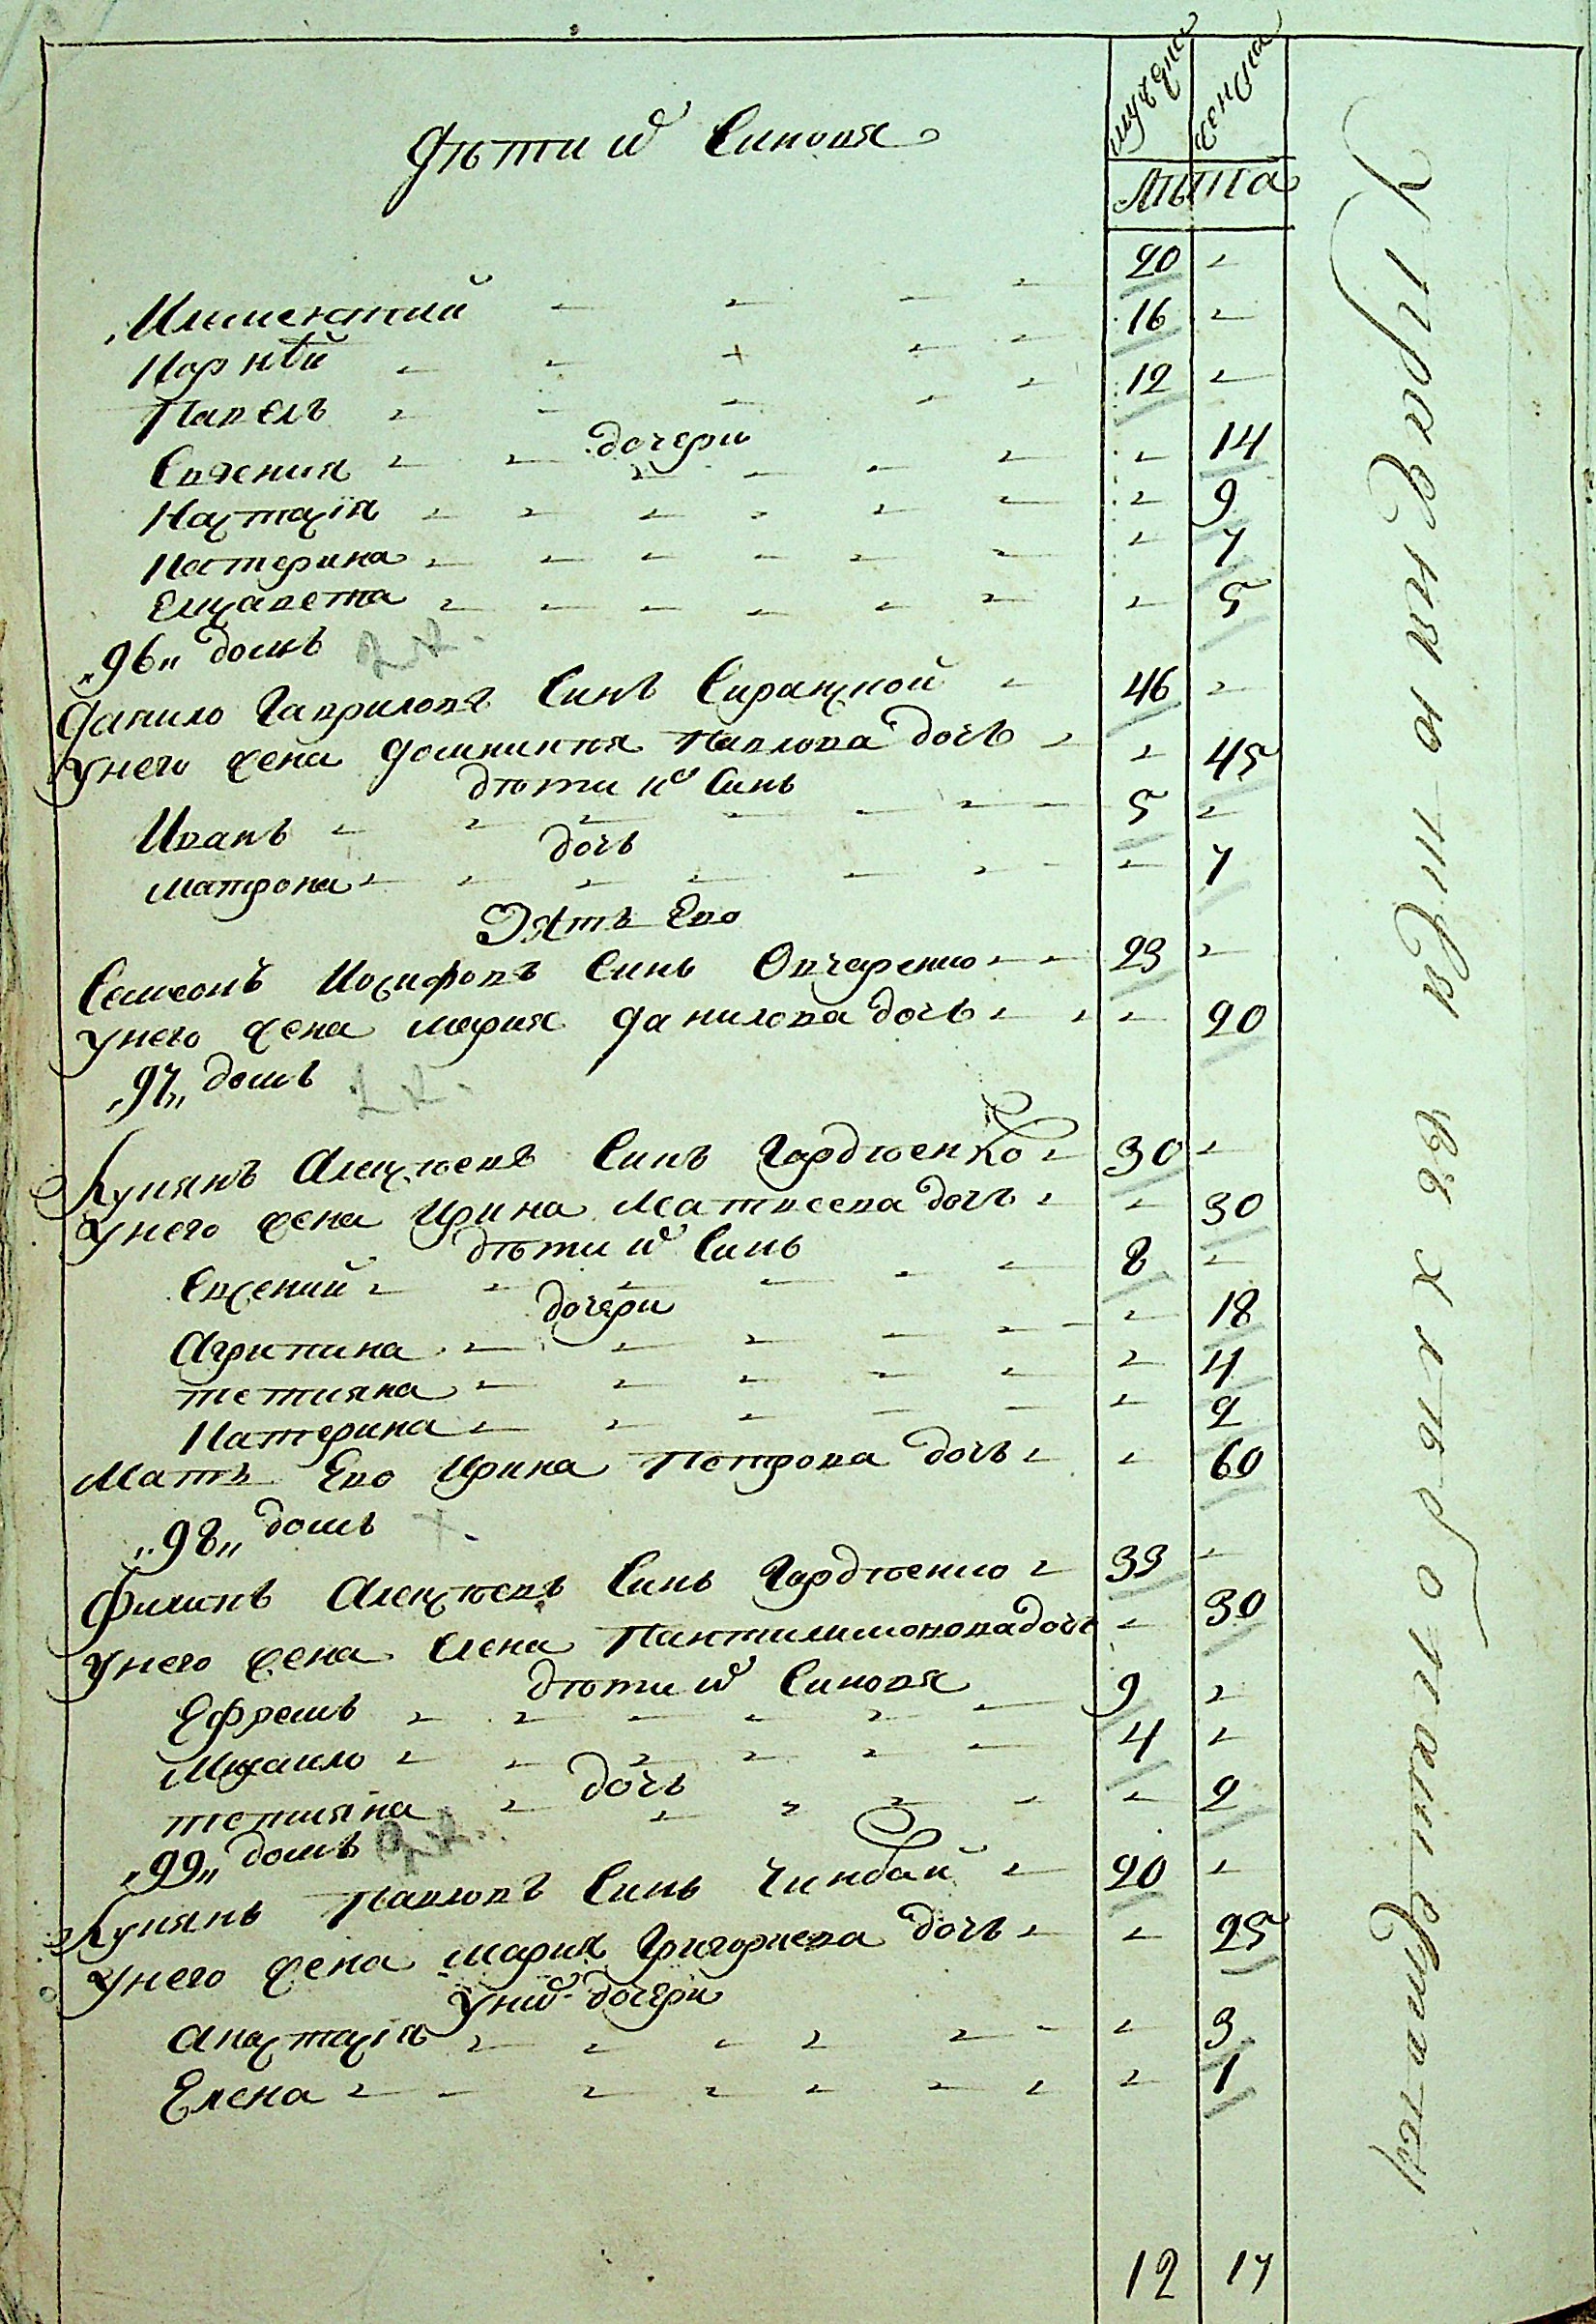 мужска женска
Дѣти и҃ Синовя
Лѣта
Климентий 20
Корнѣй 16
Павелъ 12
дочери
Евгения 14
Настасія 9
Катерина 7
Елисавета 5
„96„ домъ
Данило Гавриловъ Синъ Сиранской 46
Унего жена Домникия Павлова дочь 45
дѣти и҃ Синъ
Иванъ 5
дочь
Матрона 7
Зять Ево
Семеонъ Иосифовъ Синъ Овчаренко 23
Унего жена Мария Данилова дочь 20
„97„ домъ
Купянъ Алексѣевъ Синъ Гордѣенко 30
Унего жена Ирина Матвеева дочь 30
дѣти и҃ Синъ
Евсений 8
дочери
Агрипина 18
Тетияна 4
Катерина 2
Мать Ево Ирина Петрова дочь 60
„98„ домъ
Филипъ Алексѣевъ Синъ Гордѣенко 33
Унего жена Елена Пантилимонова дочь 30
дѣти и҃ Синовя
Ефремъ 9
Михаило 4
дочь
Тетияна 2
„99„ домъ
Купянъ Павловъ Синъ Чиндай 20
Унего жена Мария Григориева дочь 25
Уних дочери
Анастасія 3
Елена 1
12 17